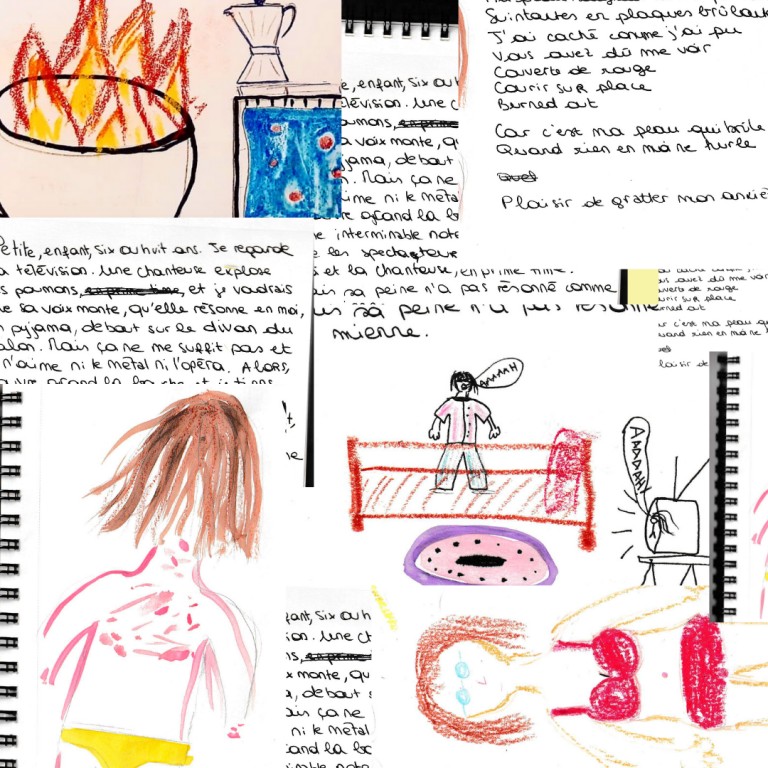 e, enfant, six ou h
élévision. Une c
oumons,
a voix monte, qu
yjama, debout
n. Mais ça ne
ime ni le méta
grand la b
interminable note
e les spectateurs
Suintantes en plaques brûlant
J'ai caché comme j'ai pu
Vous avez dû me voir
Couverte de rouge
Courir sur place
Burned out
Car c'est ma peau qui brûle
Quand rien en moi ne hurle
Plaisir de gratter mon ancie
etite, enfant, six ou huit ans. Je regarde
a télévision. Une chanteuse explose
s poumons, et je voudrais
e sa voix monte, qu'elle résonne en moi,
n pyjama, debout sur le divan du
alon. Mais ça ne me suffit pas et
n'aime ni le métal ni l'opéra. Alors,
et la chanteuse, en prime time.
is sa peine n'a pas résonné comme
mienne.
uverte de rouge
urir sur place
rned out
r c'est ma peau qu
uand rien en moi ne h
laisir de
AAAAH
AAAAAH
enfant, six ou h
ion. Une ch
ns,
x monte, qu
a, debout s
ais ça ne
ni le métal
rand la bo
inable note